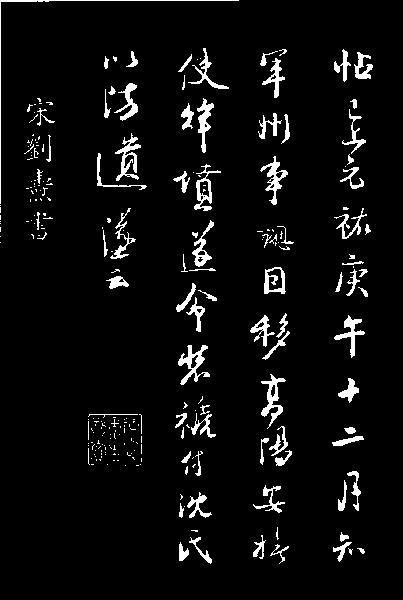 帖已上元祐庚午十二月知
軍州事因移高陽安撫
使拜墳遂令裝褫付沈氏
以防遺云
宋劉燾書